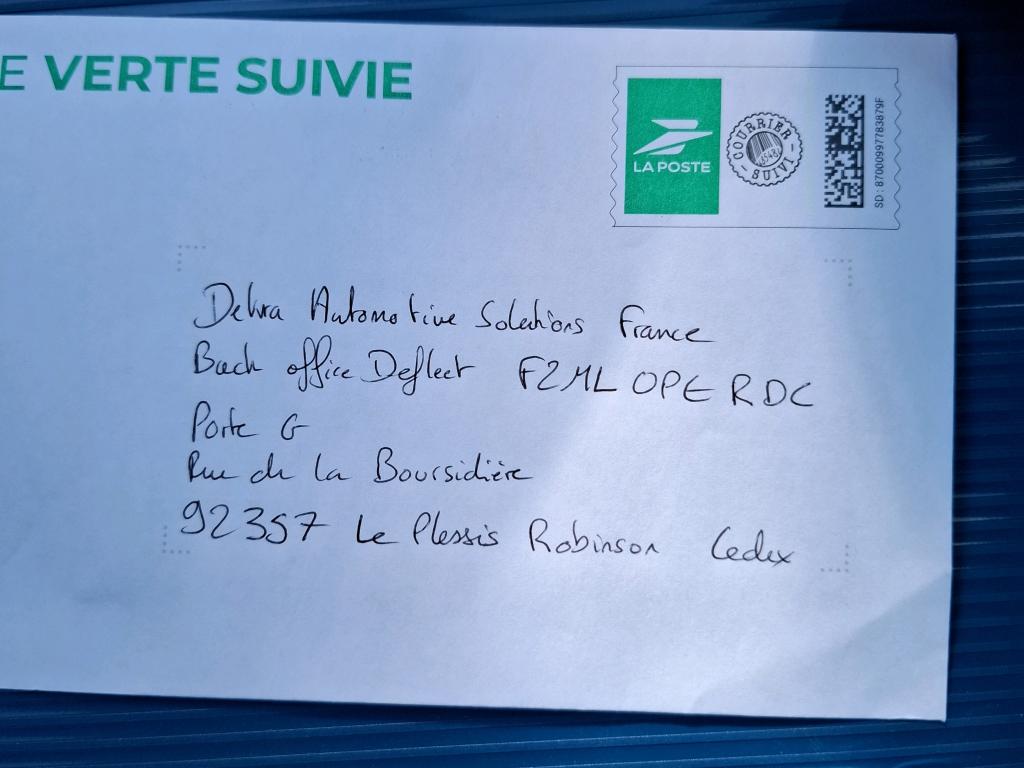 E VERTE SUIVIE
LA POSTE
COURRIER
SUIVI
SD : 87000997783879F
Dekra Automotive Solutions France
Back office Defleet F2ML OPE RDC
Porte G
Rue de la Boursidière
92357 Le Plessis Robinson Cedex